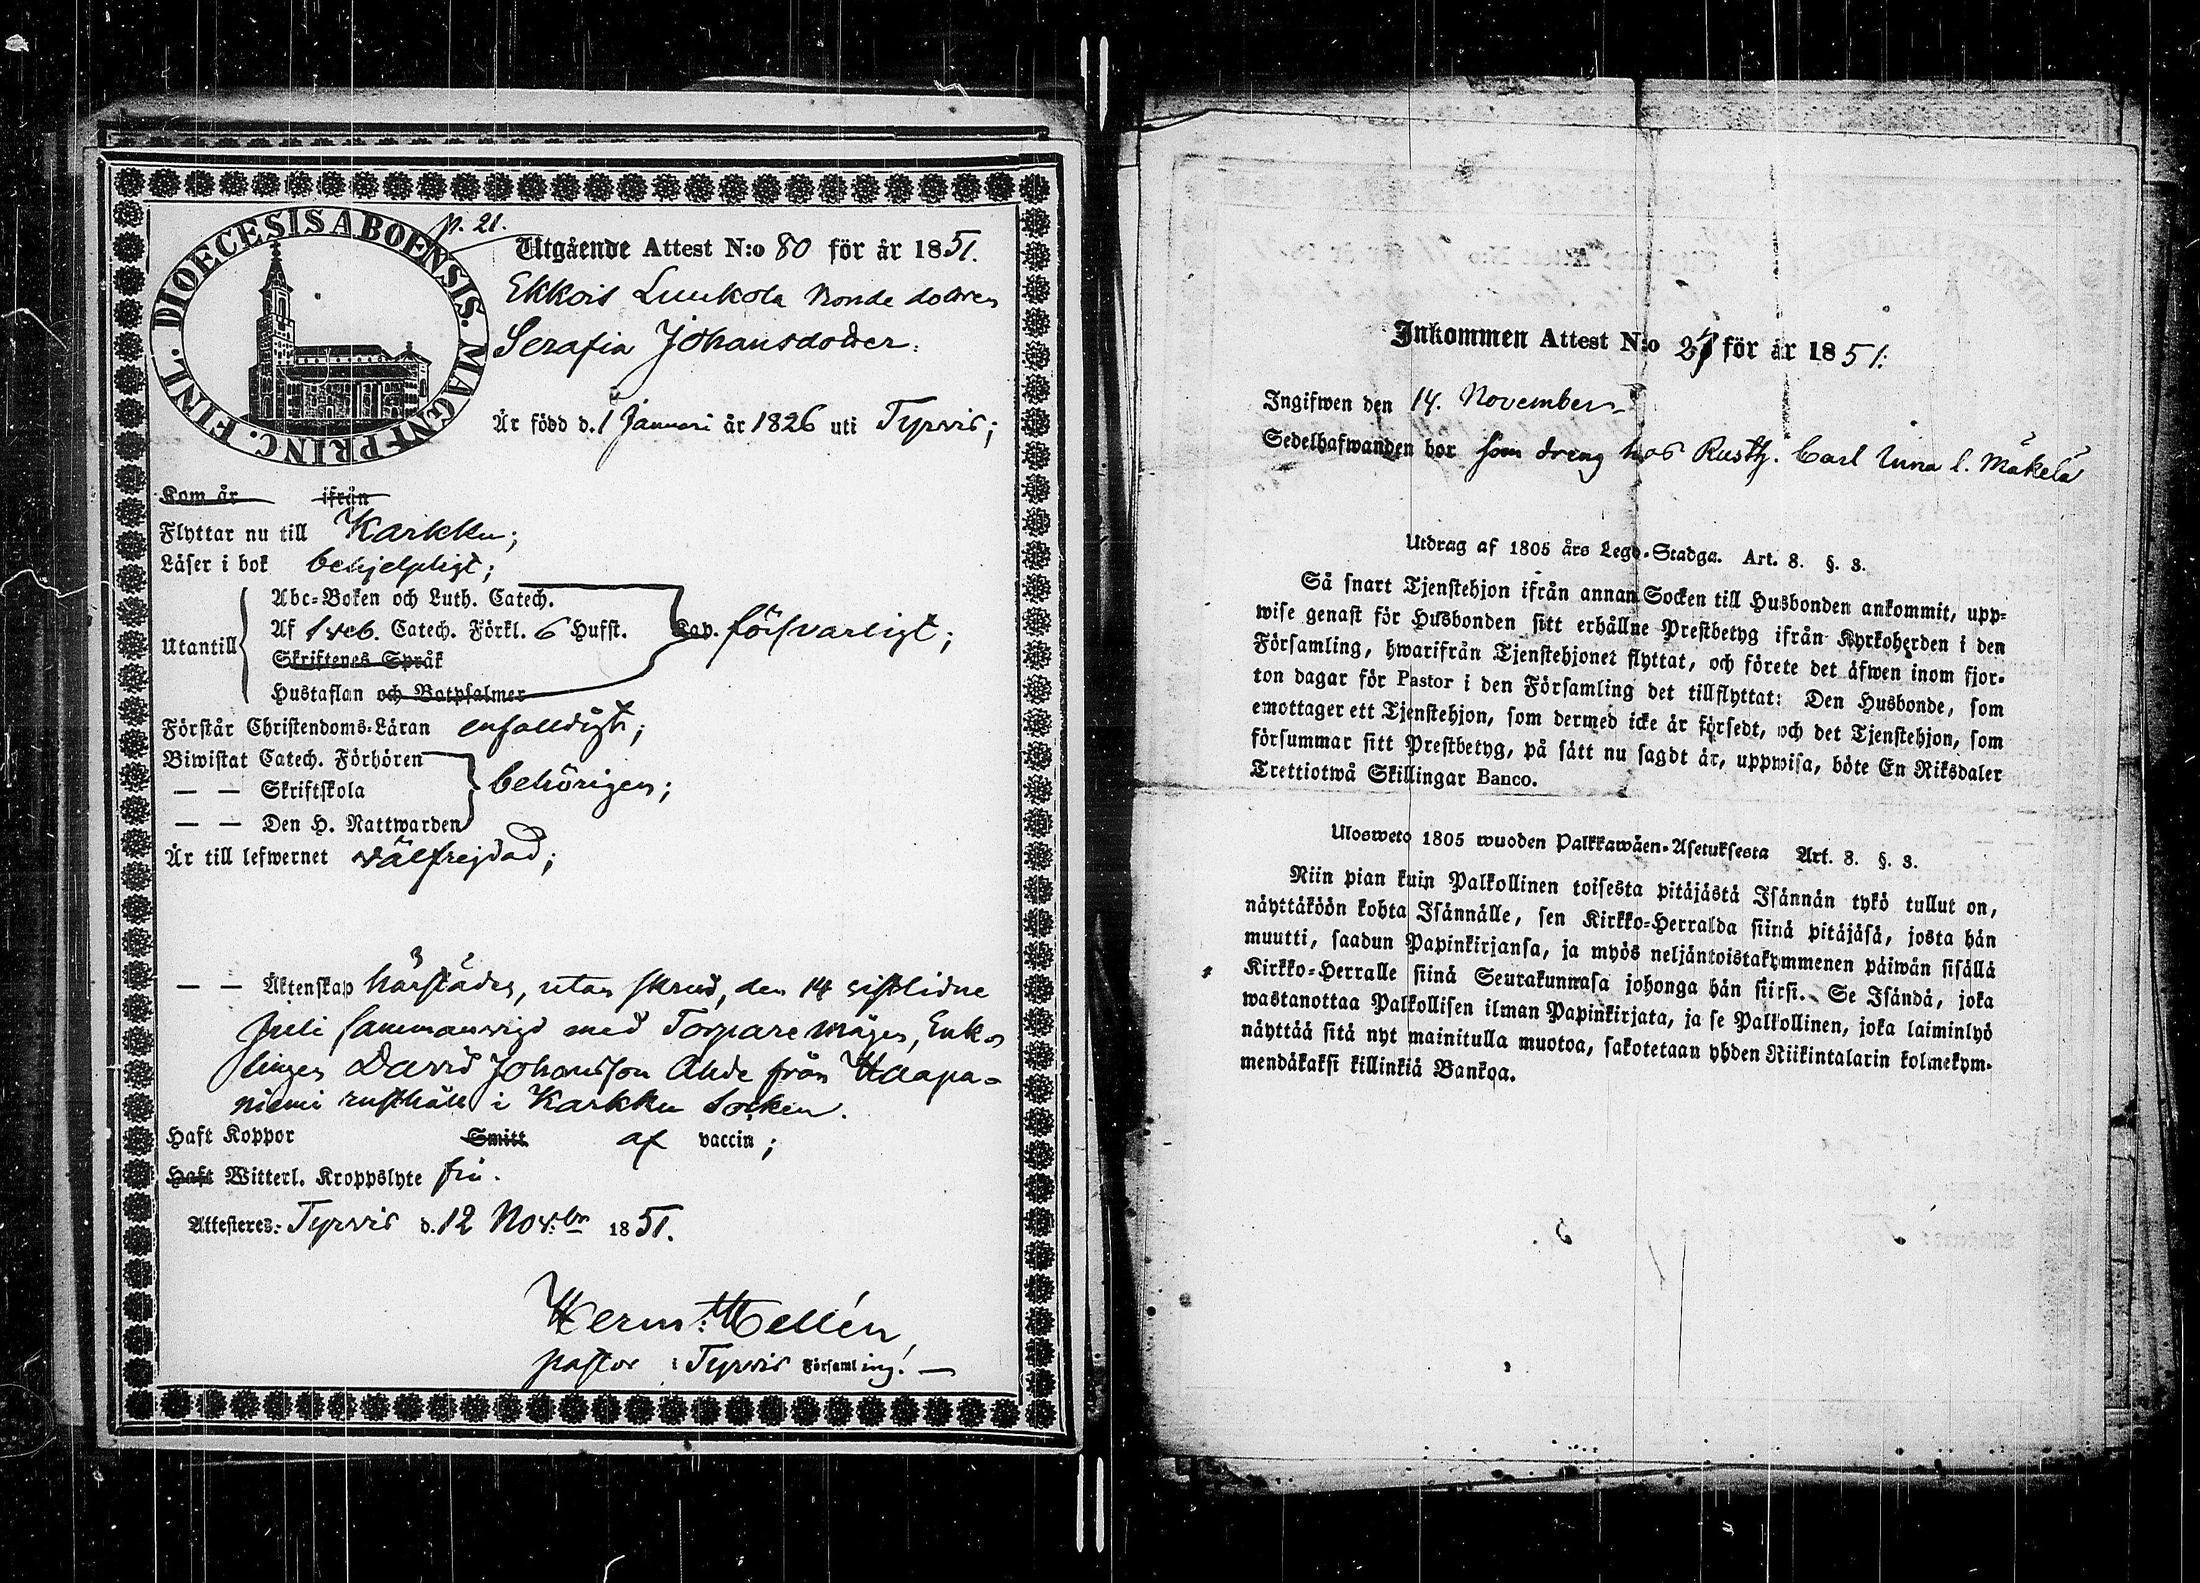 p. 21.
DIOECESIS ABOENSIS. MAGNI PRINC. FINL.
Utgående Attest N:o 80 för år 1851.
Ekkois Luukola Bonde dottren
Serafia Johansdotter.
Är född d. 1 Januari år 1826 uti Tyrvis;
Kom år ifrån
Flyttar nu till Karkku;
Läser i bok behjelpligt;
Utantill
Abc-Boken och Luth. Catech.
Af Sveb. Catech. Förkl. 6 Hufst. Cap. försvarligt;
Skriftenes Språk
Hustaflan och Botpsalmer
Förstår Christendoms-Läran enfalldigt;
Biwistat Catech. Förhören
— — Skriftskola behörigen;
— — Den H. Nattwarden
Är till lefwernet välfrejdad;
— — Äktenskap härstädes, utan skrud, den 14 sistlidne
Juli sammanvigd med Torpare mågen, Enk-
lingen David Johansson Ahde från Haapa-
niemi rusthåll i Karkku Socken.
Haft Koppor Smitt af vaccin;
Haft Witterl. Kroppslyte fri.
Attesteres: Tyrvis d. 12 Nov:br 1851.
Herm: Hellén,
pastor i Tyrvis Församling. —
Inkommen Attest N:o för år 1851:
Ingifwen den 14. November
Sedelhafwanden bor som dreng hos Rusth. Carl l. Mäkelä
Utdrag af 1805 års Lego-Stadga. Art. 8. §. 3.
Så snart Tjenstehjon ifrån annan Socken till Husbonden ankommit, upp-
wise genast för Husbonden sitt erhållne Prestbetyg ifrån Kyrkoherden i den
Församling, hwarifrån Tjenstehjonet flyttat, och förete det äfwen inom fjor-
ton dagar för Pastor i den Församling det tillflyttat: Den Husbonde, som
emottager ett Tjenstehjon, som dermed icke är försedt, och det Tjenstehjon, som
försummar sitt Prestbetyg, på sätt nu sagdt är, uppwisa, böte En Riksdaler
Trettiotwå Skillingar Banco.
Ulosweto 1805 wuoden Palkkawäen-Asetuksesta Art. 8. §. 3.
Niin pian kuin Palkollinen toisesta pitäjästä Isännän tykö tullut on,
näyttäköön kohta Isännälle, sen Kirkko-Herralda siinä pitäjäsä, josta hän
muutti, saadun Papinkirjansa, ja myös neljäntoistakymmenen päiwän sisällä
Kirkko-Herralle siinä Seurakunnasa johonga hän siirsi. Se Isändä, joka
wastanottaa Palkollisen ilman Papinkirjata, ja se Palkollinen, joka laiminlyö
näyttää sitä nyt mainitulla muotoa, sakotetaan yhden Riikintalarin kolmekym-
mendäkaksi killinkiä Bankoa.